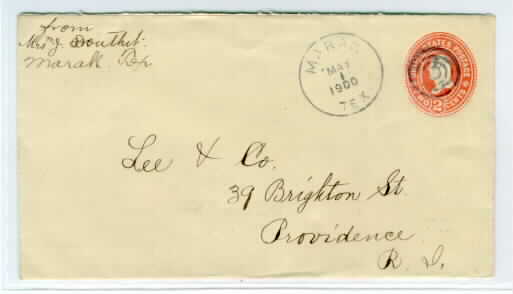 from
Mrs J. Douthit.
Marak. Tex
MARAK
MAY
1
1900
TEX.
UNITED STATES POSTAGE
TWO 2 CENTS
Lee & Co.
39 Brighton St
Providence
R. I.